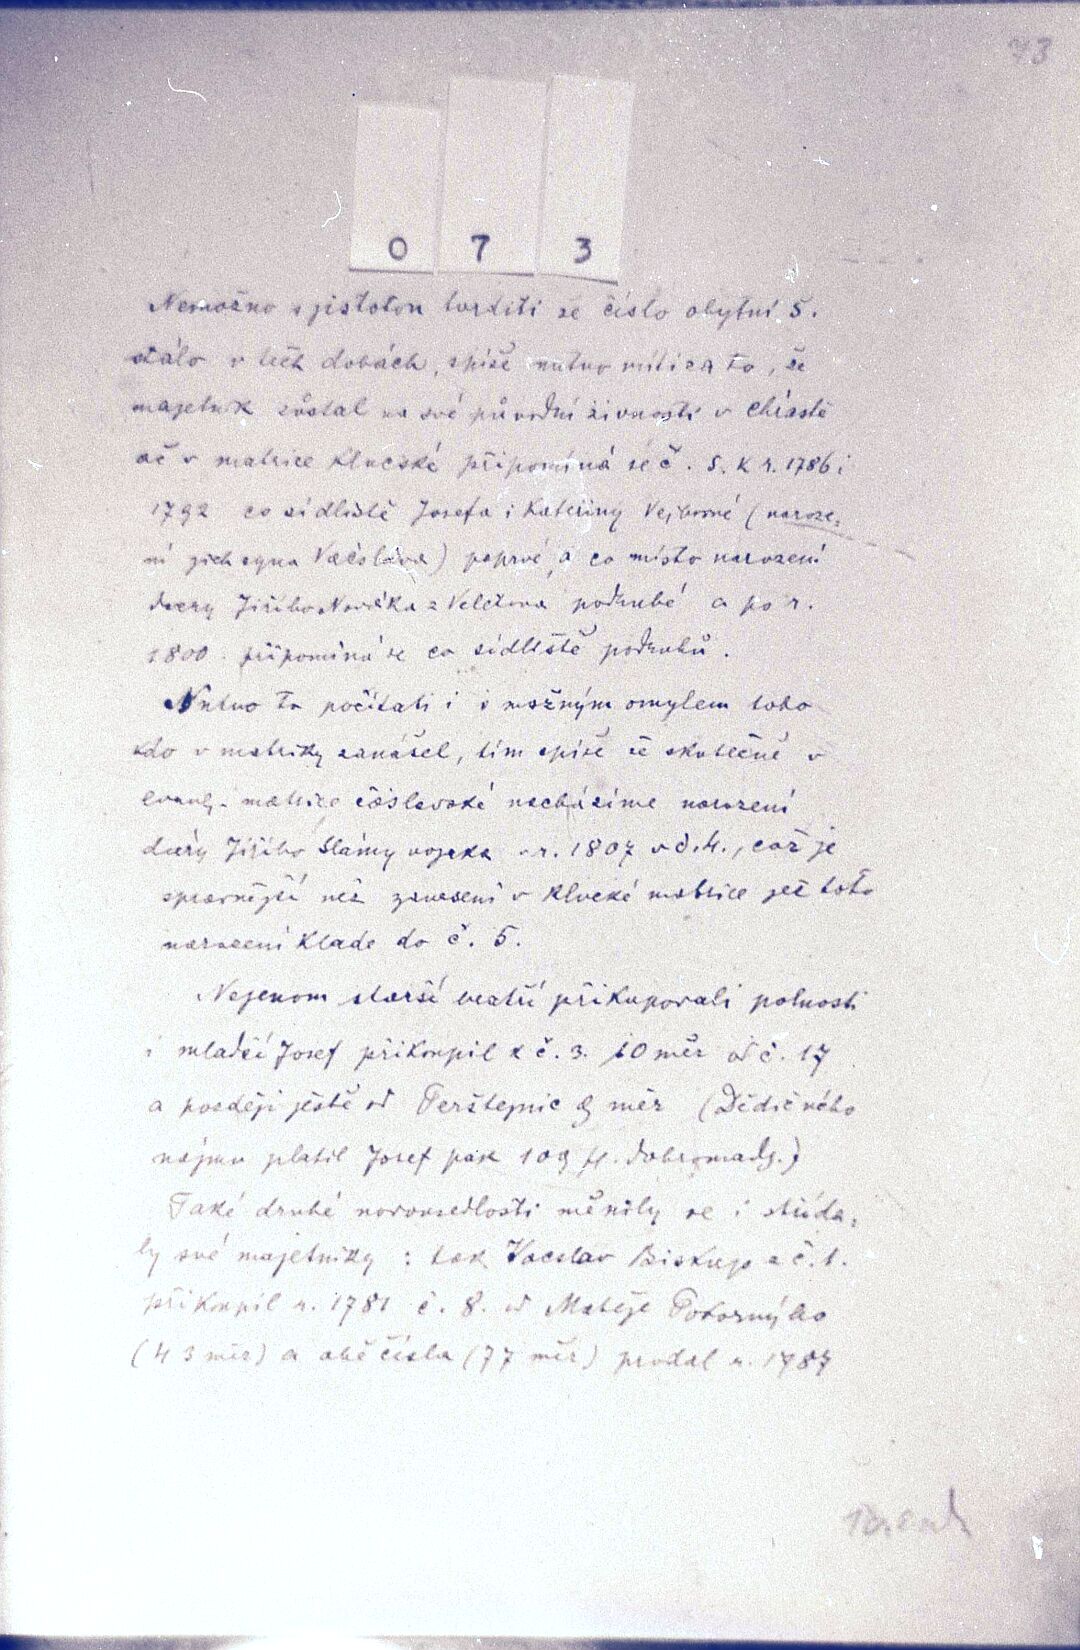 73
0 7 3
Nemožno s jistotou tvrditi že číslo obytní 5.
stálo v těch dobách, spíše nutno míti za to, že
majetník zůstal na své původní živnosti v Chrastě
ač v matrice Klucské připomíná se č. 5. K r. 1786 i
1792 co sídliště Josefa i Kateřiny Vejborné (naroze-
ní jich syna Václava) poprvé, a co místo narození
dcery Jiřího Nováka z Veletova podruhé a po r.
1800 připomíná se co sídliště podruhů.
Nutno tu počítati i s možným omylem toho
kdo v matriky zanášel, tím spíše že skutečně v
evang. matrice čáslavské nacházíme narození
dcery Jiřího Slámy vojáka v r. 1807 v č. 4., což je
správnější než zanesení v Klucké matrice jež toto
narození klade do č. 5.
Nejenom starší bratří přikupovali polnosti
i mladší Josef přikoupil k č. 3. 10 měr od č. 17
a později ještě od Perštejnic 9 měr (Dědičného
nájmu platil Josef pak 109 fl.
Také druhé novousedlosti měnily se i střída-
ly své majetníky : tak Vacslav Biskup z č. 1.
přikoupil r. 1781 č. 8. od Matěje Pokorného
(43 měr) a obě čísla (77 měr) prodal r. 1787